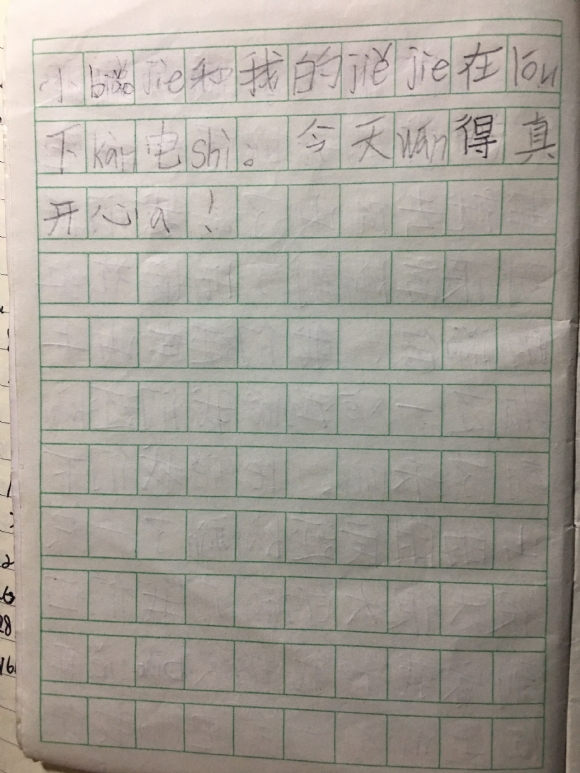 小biǎojie和我的jiějie在lóu
下kàn电shì。今天wán得真
开心a！